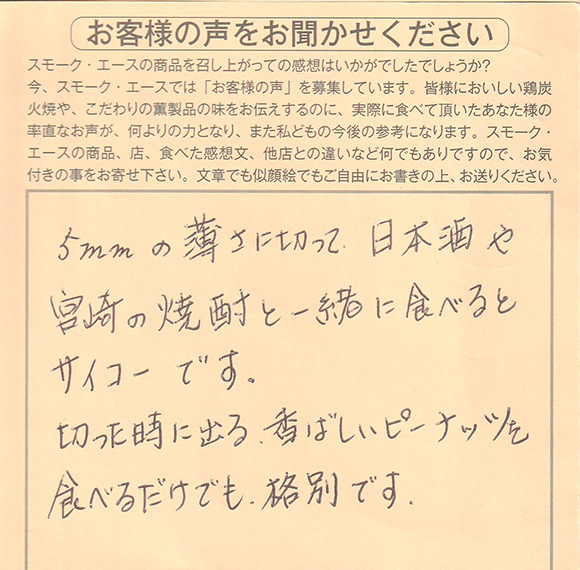 お客様の声をお聞かせください
スモーク・エースの商品を召し上がっての感想はいかがでしたでしょうか?
今、スモーク・エースでは「お客様の声」を募集しています。皆様においしい鶏炭
火焼や、こだわりの薫製品の味をお伝えするのに、実際に食べて頂いたあなた様の
率直なお声が、何よりの力となり、また私どもの今後の参考になります。スモーク・
エースの商品、店、食べた感想文、他店との違いなど何でもありですので、お気
付きの事をお寄せ下さい。文章でも似顔絵でもご自由にお書きの上、お送りください。
5mmの薄さに切って、日本酒や
宮崎の焼酎と一緒に食べると
サイコーです。
切った時に出る、香ばしいピーナッツを
食べるだけでも、格別です。